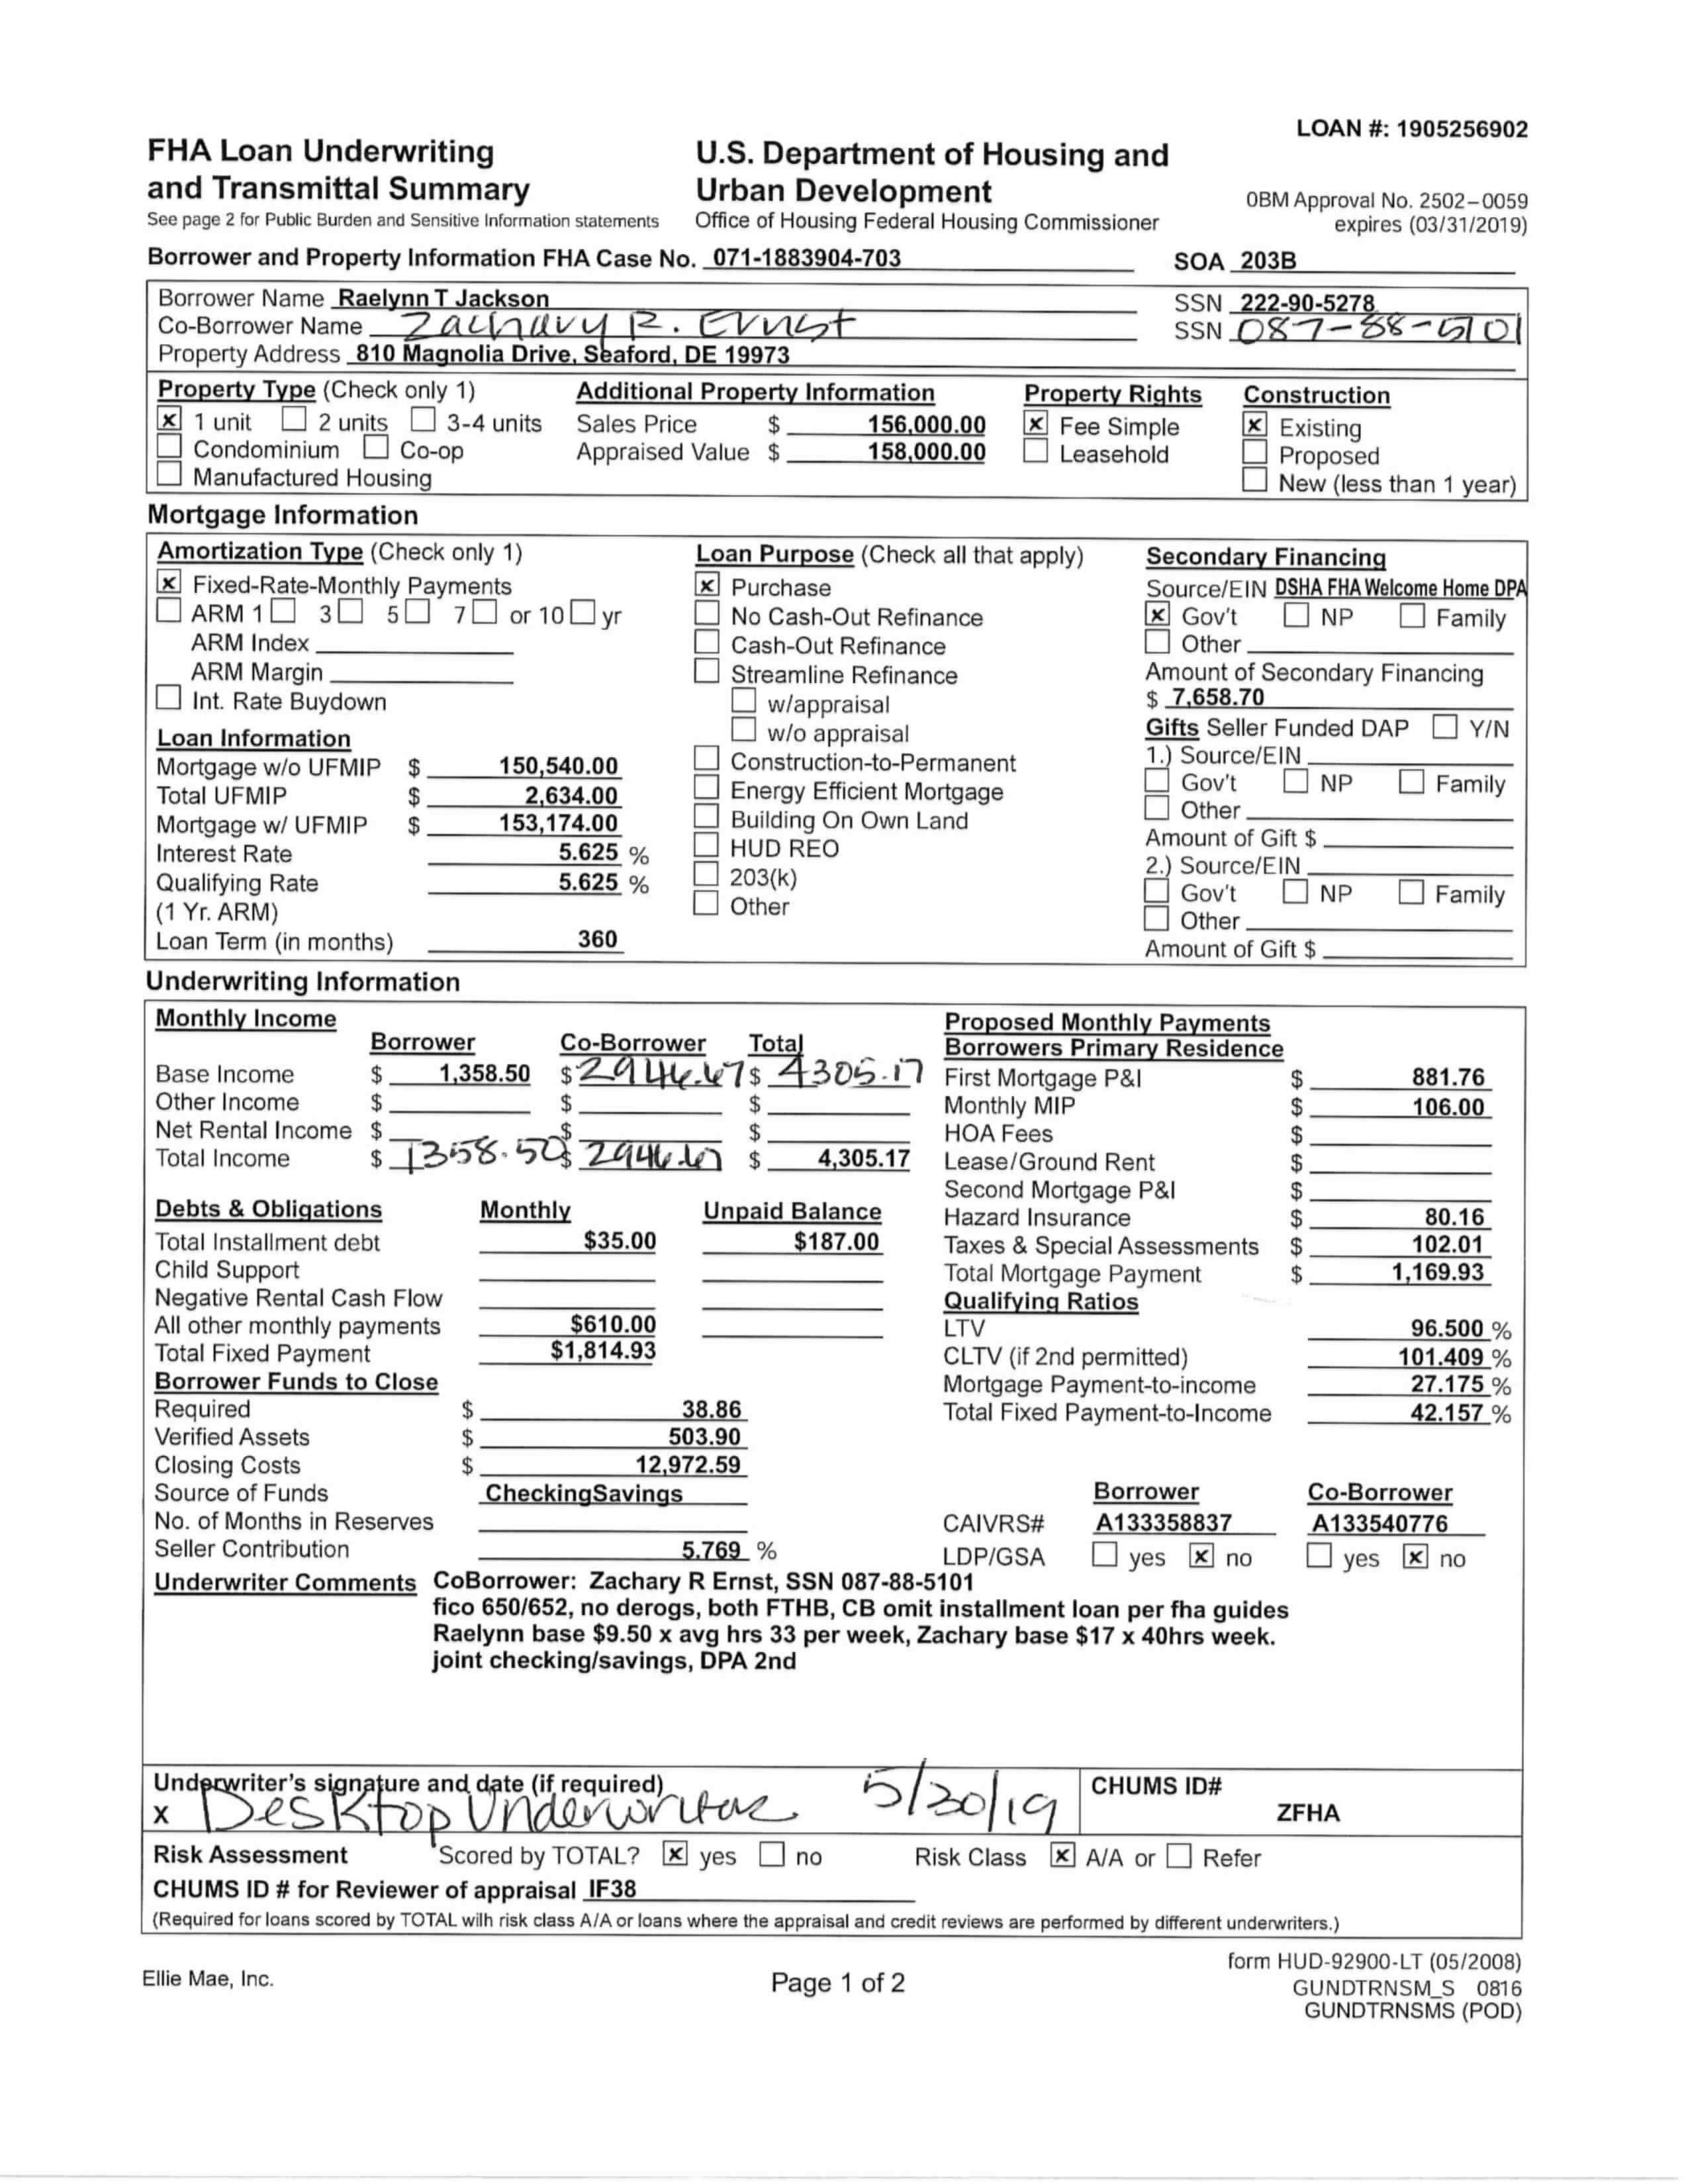 LOAN #: 1905256902
FHA Loan Underwriting
and Transmittal Summary
See page 2 for Public Burden and Sensitive Information statements
U.S. Department of Housing and
Urban Development
Office of Housing Federal Housing Commissioner
OBM Approval No. 2502-0059
expires (03/31/2019)
Borrower and Property Information FHA Case No. 071-1883904-703 SOA 203B
Borrower Name Raelynn T Jackson SSN 222-90-5278
Co-Borrower Name Zachary R. Ernst SSN 087-88-5101
Property Address 810 Magnolia Drive, Seaford, DE 19973
Property Type (Check only 1) Additional Property Information Property Rights Construction
x 1 unit 2 units 3-4 units Sales Price $ 156,000.00 x Fee Simple x Existing
Condominium Co-op Appraised Value $ 158,000.00 Leasehold Proposed
Manufactured Housing New (less than 1 year)
Mortgage Information
Amortization Type (Check only 1)
x Fixed-Rate-Monthly Payments
ARM 1 3 5 7 or 10 yr
ARM Index
ARM Margin
Int. Rate Buydown
Loan Information
Mortgage w/o UFMIP $ 150,540.00
Total UFMIP $ 2,634.00
Mortgage w/ UFMIP $ 153,174.00
Interest Rate 5.625 %
Qualifying Rate 5.625 %
(1 Yr. ARM)
Loan Term (in months) 360
Loan Purpose (Check all that apply)
x Purchase
No Cash-Out Refinance
Cash-Out Refinance
Streamline Refinance
w/appraisal
w/o appraisal
Construction-to-Permanent
Energy Efficient Mortgage
Building On Own Land
HUD REO
203(k)
Other
Secondary Financing
Source/EIN DSHA FHA Welcome Home DPA
x Gov't NP Family
Other
Amount of Secondary Financing
$ 7,658.70
Gifts Seller Funded DAP Y/N
1.) Source/EIN
Gov't NP Family
Other
Amount of Gift $
2.) Source/EIN
Gov't NP Family
Other
Amount of Gift $
Underwriting Information
Monthly Income
Borrower Co-Borrower Total
Base Income $ 1,358.50 $ 2946.67 $ 4305.17
Other Income $ $ $
Net Rental Income $ $ $
Total Income $ 1358.50 $ 2946.67 $ 4,305.17
Debts & Obligations Monthly Unpaid Balance
Total Installment debt $35.00 $187.00
Child Support
Negative Rental Cash Flow
All other monthly payments $610.00
Total Fixed Payment $1,814.93
Borrower Funds to Close
Required $ 38.86
Verified Assets $ 503.90
Closing Costs $ 12,972.59
Source of Funds CheckingSavings
No. of Months in Reserves
Seller Contribution 5.769 %
Proposed Monthly Payments
Borrowers Primary Residence
First Mortgage P&I $ 881.76
Monthly MIP $ 106.00
HOA Fees $
Lease/Ground Rent $
Second Mortgage P&I $
Hazard Insurance $ 80.16
Taxes & Special Assessments $ 102.01
Total Mortgage Payment $ 1,169.93
Qualifying Ratios
LTV 96.500 %
CLTV (if 2nd permitted) 101.409 %
Mortgage Payment-to-income 27.175 %
Total Fixed Payment-to-Income 42.157 %
Borrower Co-Borrower
CAIVRS# A133358837 A133540776
LDP/GSA yes x no yes x no
Underwriter Comments CoBorrower: Zachary R Ernst, SSN 087-88-5101
fico 650/652, no derogs, both FTHB, CB omit installment loan per fha guides
Raelynn base $9.50 x avg hrs 33 per week, Zachary base $17 x 40hrs week.
joint checking/savings, DPA 2nd
Underwriter's signature and date (if required)
x Desktop Underwriter 5/30/19
CHUMS ID#
ZFHA
Risk Assessment Scored by TOTAL? x yes no Risk Class x A/A or Refer
CHUMS ID # for Reviewer of appraisal IF38
(Required for loans scored by TOTAL wilh risk class A/A or loans where the appraisal and credit reviews are performed by different underwriters.)
form HUD-92900-LT (05/2008)
Ellie Mae, Inc. Page 1 of 2 GUNDTRNSM_S 0816
GUNDTRNSMS (POD)